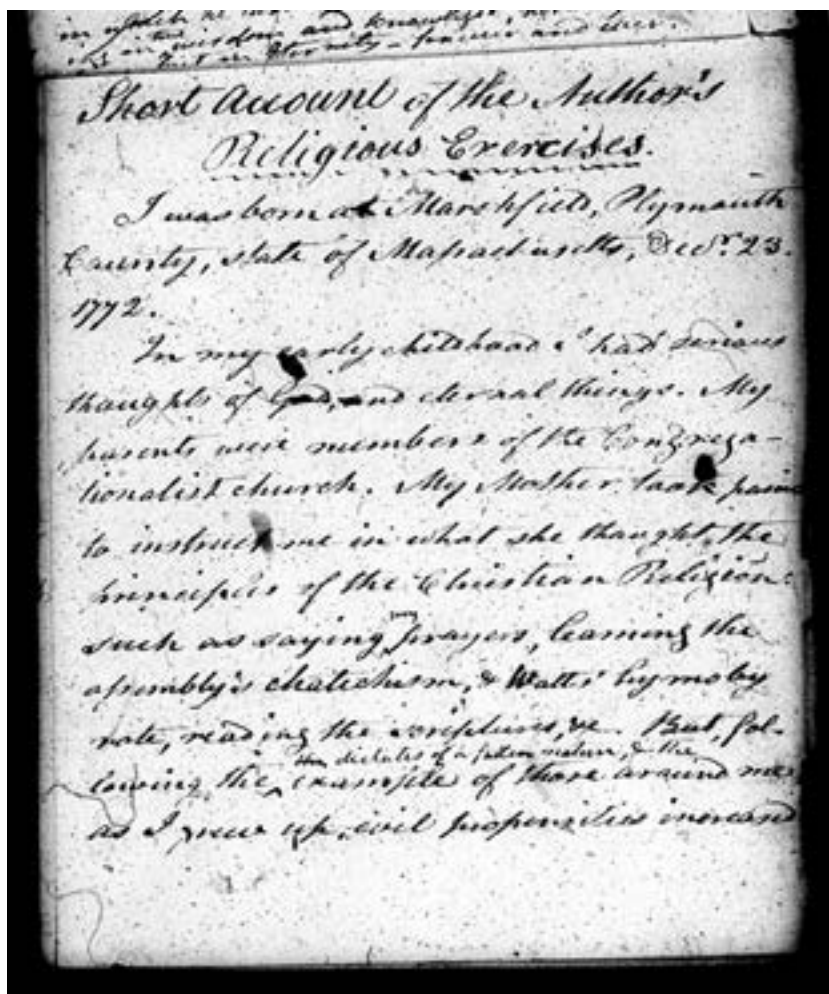 in wisdom and knowledge,
but in Eternity – forever and ever.
Short Account of the Author's
Religious Exercises.
I was born at Marshfield, Plymouth
County, state of Massachusetts, Decr. 23.
1772.
In my early childhood I had serious
thoughts of God, and eternal things. My
parents were members of the Congrega-
tionalist church. My Mother took pains
to instruct me in what she thought the
principles of the Christian Religion:
such as saying prayers, learning the
assembly's chatechism, & Watts' hyms by
rote, reading the scriptures, &c. But, fol-
the dictates of a fallen nature, & the
lowing the example of those around me,
as I grew up, evil propensities increased